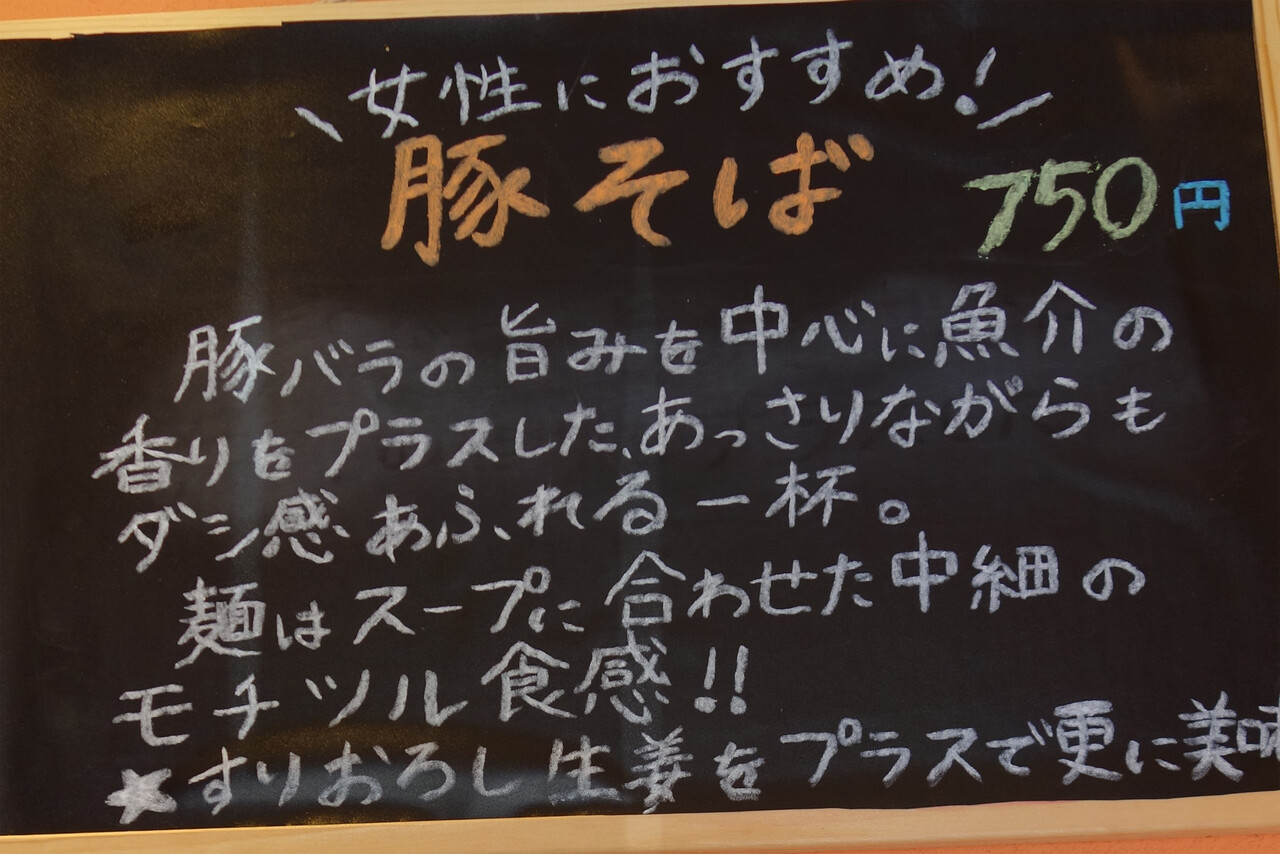 \女性におすすめ!/
豚そば 750円
豚バラの旨みを中心に魚介の
香りをプラスした、あっさりながらも
ダシ感あふれる一杯。
麺はスープに合わせた中細の
モチツル食感!!
★すりおろし生姜をプラスで更に美味